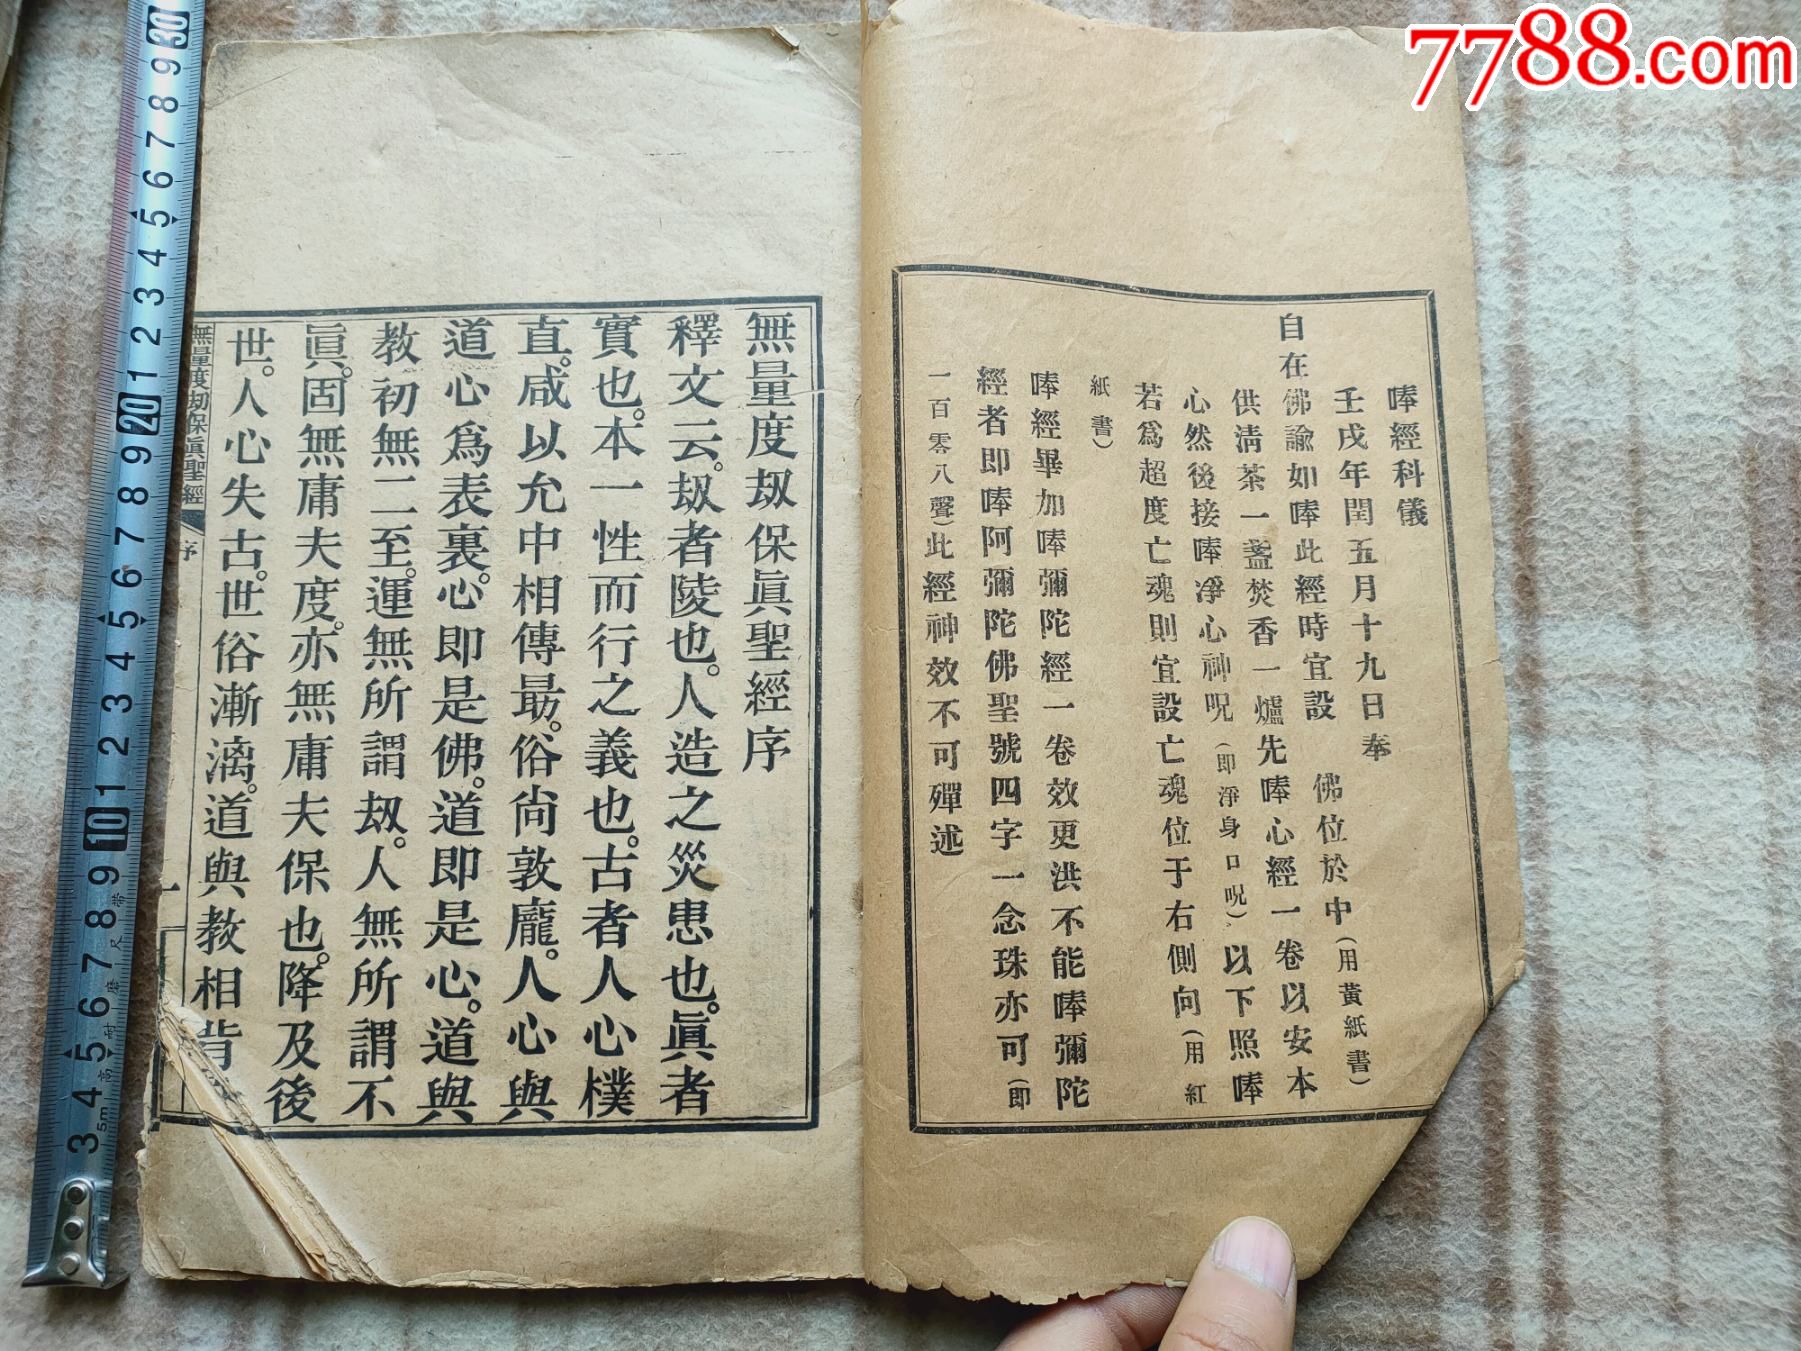 7788.com
唪經科儀
壬戌年閏五月十九日奉
自在佛諭如唪此經時宜設 佛位於中(用黃紙書)
供清茶一盞焚香一爐先唪心經一卷以安本
心然後接唪淨心神呪(即淨身口呪)以下照唪
若爲超度亡魂則宜設亡魂位于右側向(用紅
紙書)
唪經畢加唪彌陀經一卷效更洪不能唪彌陀
經者即唪阿彌陀佛聖號四字一念珠亦可(即
一百零八聲)此經神效不可殫述
無量度刼保眞聖經序
釋文云。刼者陵也。人造之災患也。眞者
實也。本一性而行之義也。古者人心樸
直。咸以允中相傳最。俗尙敦龐。人心與
道心爲表裏。心即是佛。道即是心。道與
教初無二至。運無所謂刼。人無所謂不
眞。固無庸夫度。亦無庸夫保也。降及後
世。人心失古。世俗漸漓。道與教相背
無量度刼保眞聖經
序
一
30
9
8
7
6
5
4
3
2
1
20
9
8
7
6
5
4
3
2
1
10
9
8
7
6
5
4
3
5m